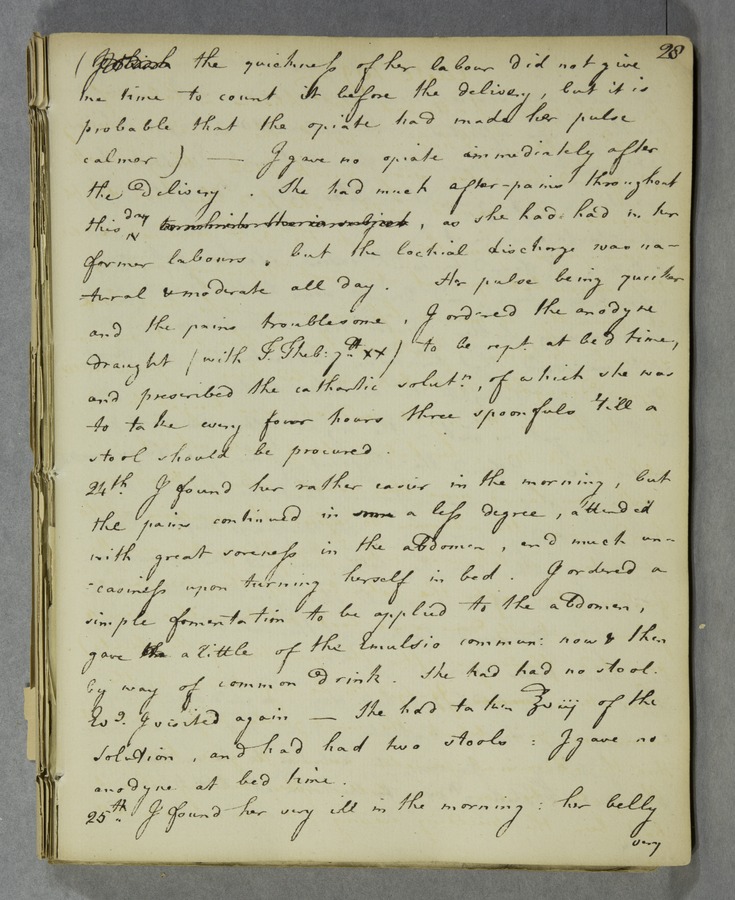 28
( the quickness of her labour did not give
me time to count it before the delivery, but it is
probable that the opiate had made her pulse
calmer ) — I gave no opiate immediately after
the Delivery . She had much after-pains throughout
this day , as she had had in her
former labours , but the lochial discharge was na-
tural & moderate all day . Her pulse being quicker
and the pains troublesome , I ordered the anodyne
draught ( with T. Theb: gtt xx ) to be rept. at bed time,
and prescribed the cathartic solutn. , of which she was
to take every four hours three spoonfuls 'till a
stool should be procured .
24th. I found her rather easier in the morning , but
the pains continued in a less degree , attended
with great soreness in the abdomen , and much un-
-easiness upon turning herself in bed . I ordered a
simple fomentation to be applied to the abdomen ,
gave a little of the Emulsio commun: now & then
by way of common Drink . She had had no stool .
I visited again — She had taken of the
solution , and had had two stools : I gave no
anodyne at bed time .
25th. I found her very ill in the morning : her belly
very